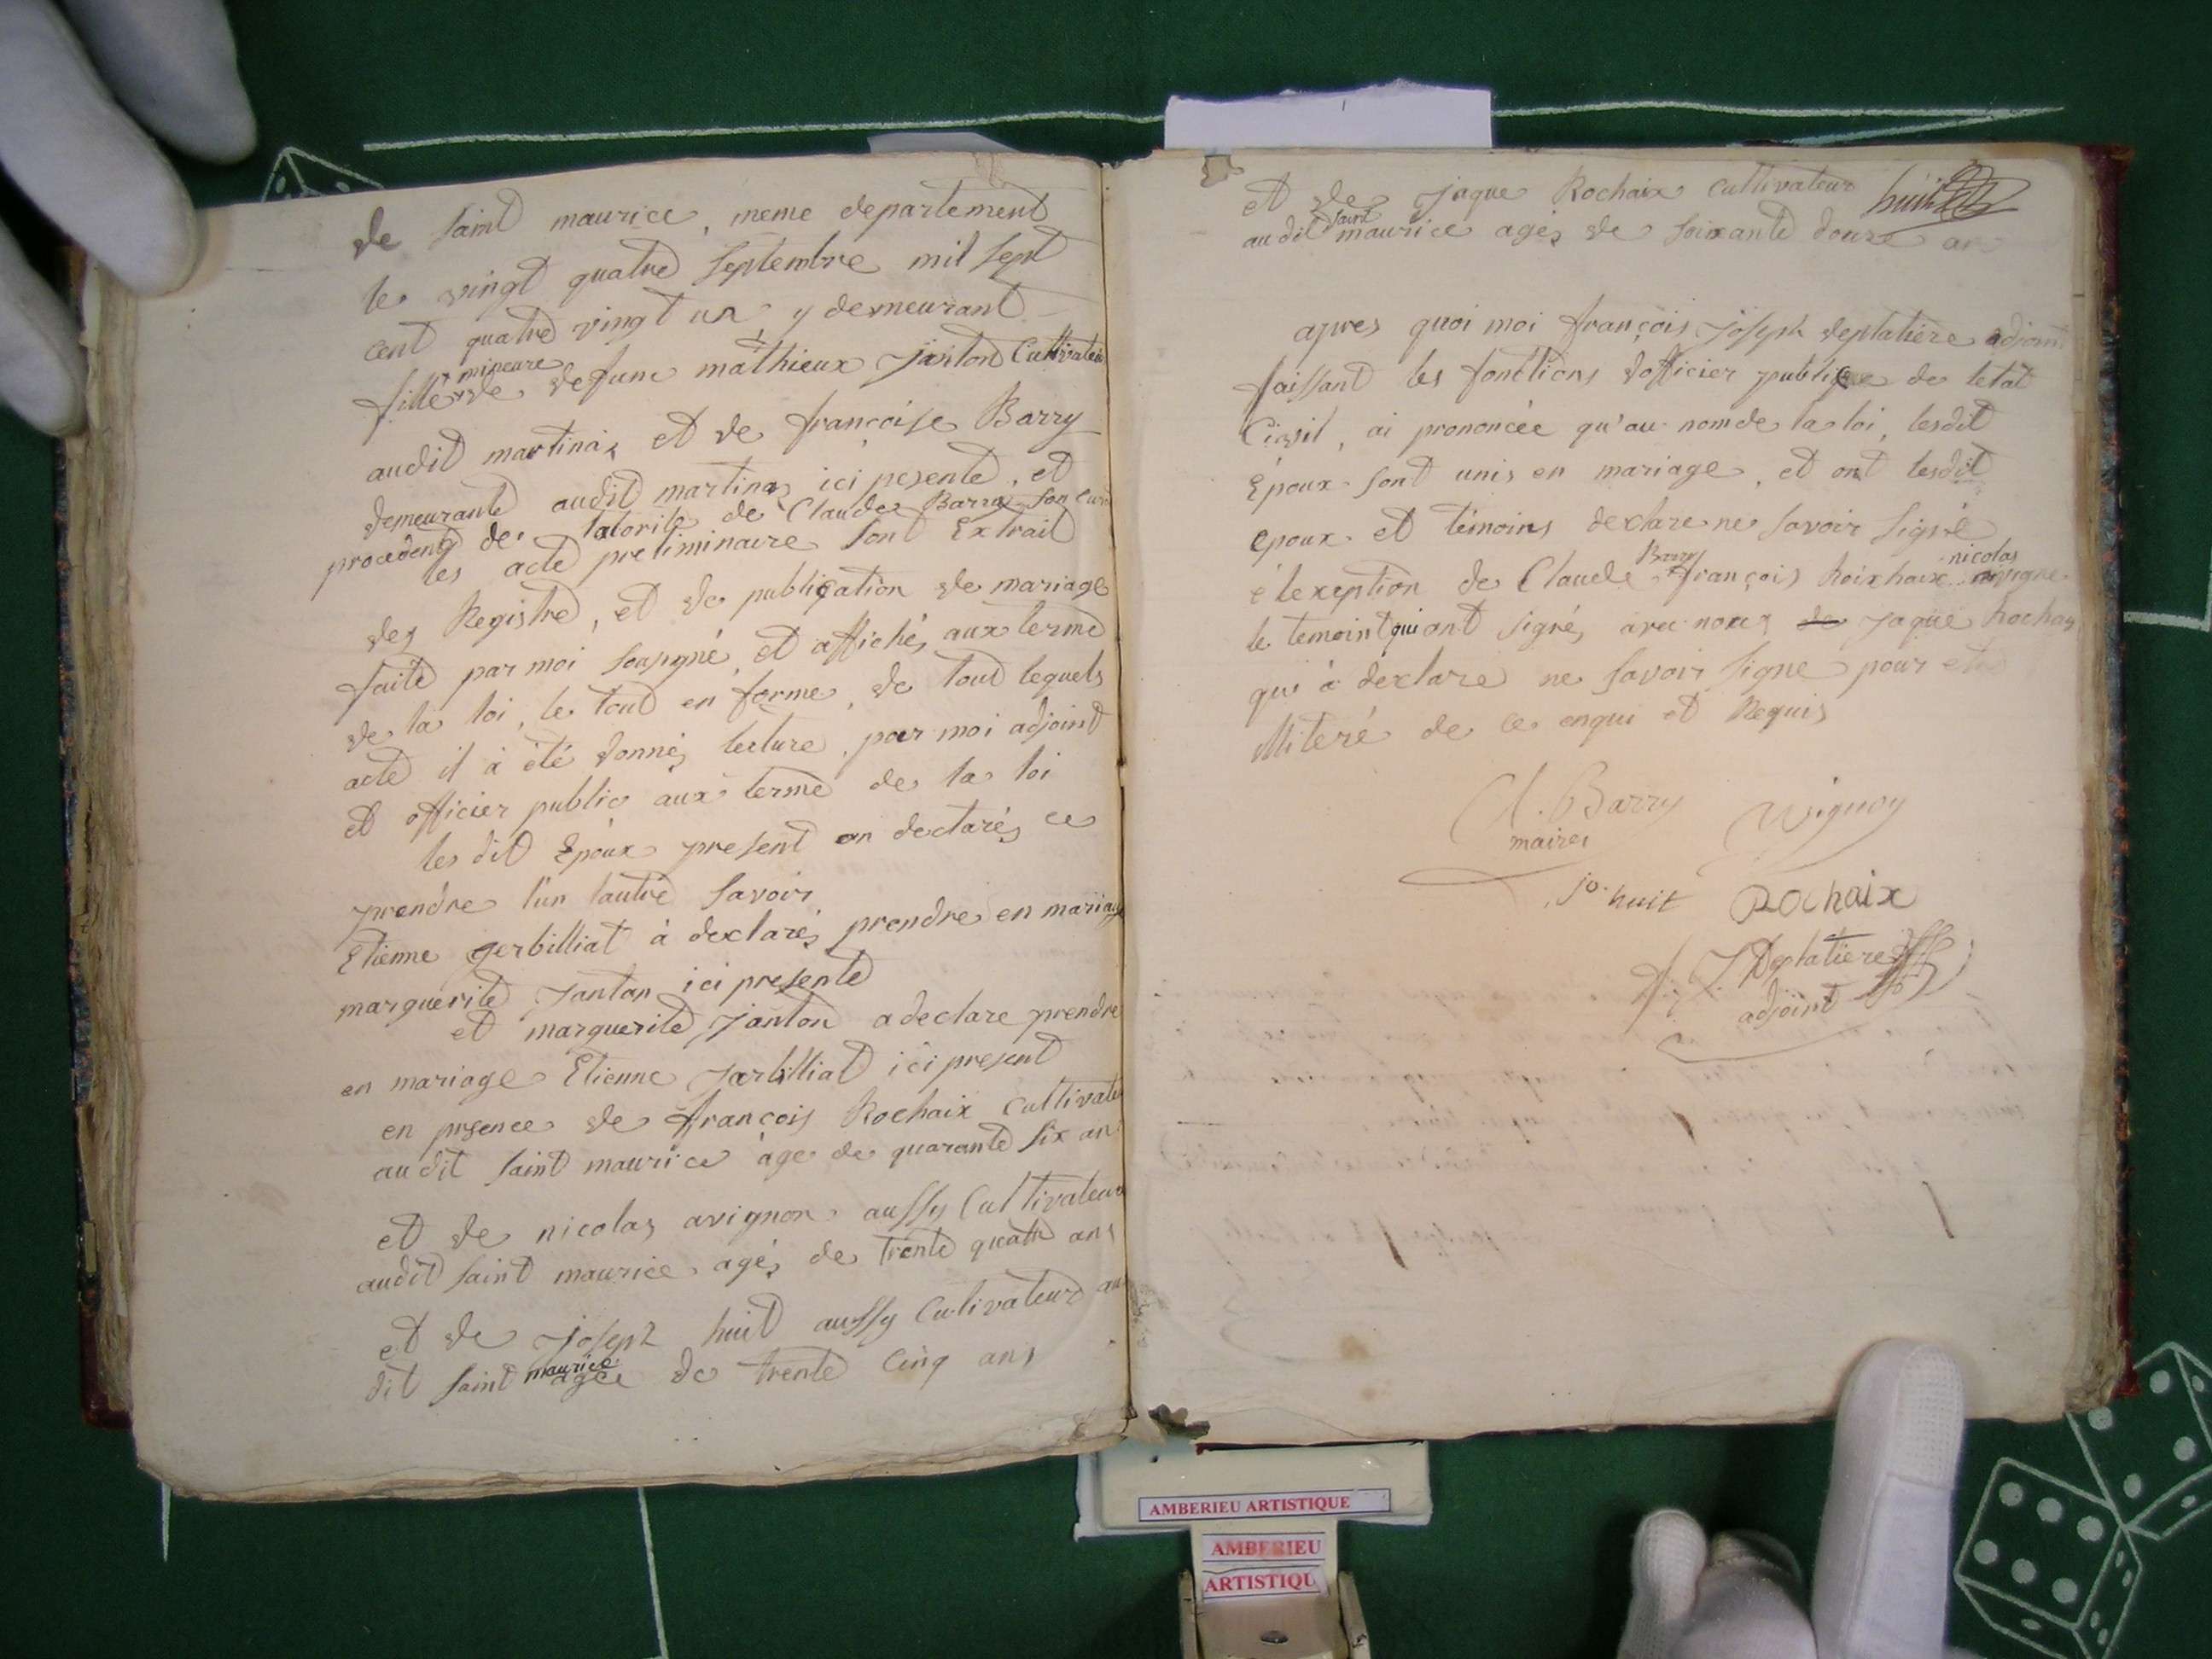 de Saint maurice, meme departement
le vingt quatre Septembre mil Sept
cent quatre vingt un y demeurant
mineure
fille de defunc mathieux Janton Cultivateur
audit martinas et de françoise Barry
demeurante audit martinas ici pesente, et
procedent de latorite de Claude Barry son cur
les acte preliminaire sont Extrait
des Registre, et de publication de mariage
faite par moi sousigné, et affichés aux terme
de la loi, le tout en forme, de tout lequels
acte il à été donnés lecture, par moi adjoint
et officier public aux terme de la loi
les dit Epoux present on declarés ce
prendre l'un lautre Savoir
Etienne gerbilliat à declarés prendre en mariage
marguerite Jantan ici presente
et marguerite Janton a declare prendre
en mariage Etienne Jarbilliat ici present
en presence de françois Rochaix Cultivate
audit Saint maurice àge de quarante Six ans
et de nicolas avignon aussy Cultivateur
audit saint maurice agés de trente quatre ans
et de joseph huit aussy Culivateur au
maurice
dit Saint agée de trente cinq ans
et de jaque Rochaix Cultivateur huit
saint
au dit maurice agés de Soixante douze an
apres quoi moi françois joseph deplatiere adjoint
faissant les fonctions dofficier publique de letat
Civil, ai prononcée qu'au nom de la loi, lesdit
Époux sont unis en mariage, et ont lesdit
epoux et témoins declare ne Savoir Signé
Barry nicolas
é lexeption de Claude françois Roixhaix avigne
le temoint qui ont signés avec nous de Jaque Rochay
qui à declare ne Savoir Signe pour etre
illiteré de ce enqui et Requis
Cl. Barry
maire
Vignoy
jo. huit
Rochaix
f. J. Deplatiere
adjoint
AMBERIEU ARTISTIQUE
AMBERIEU
ARTISTIQU